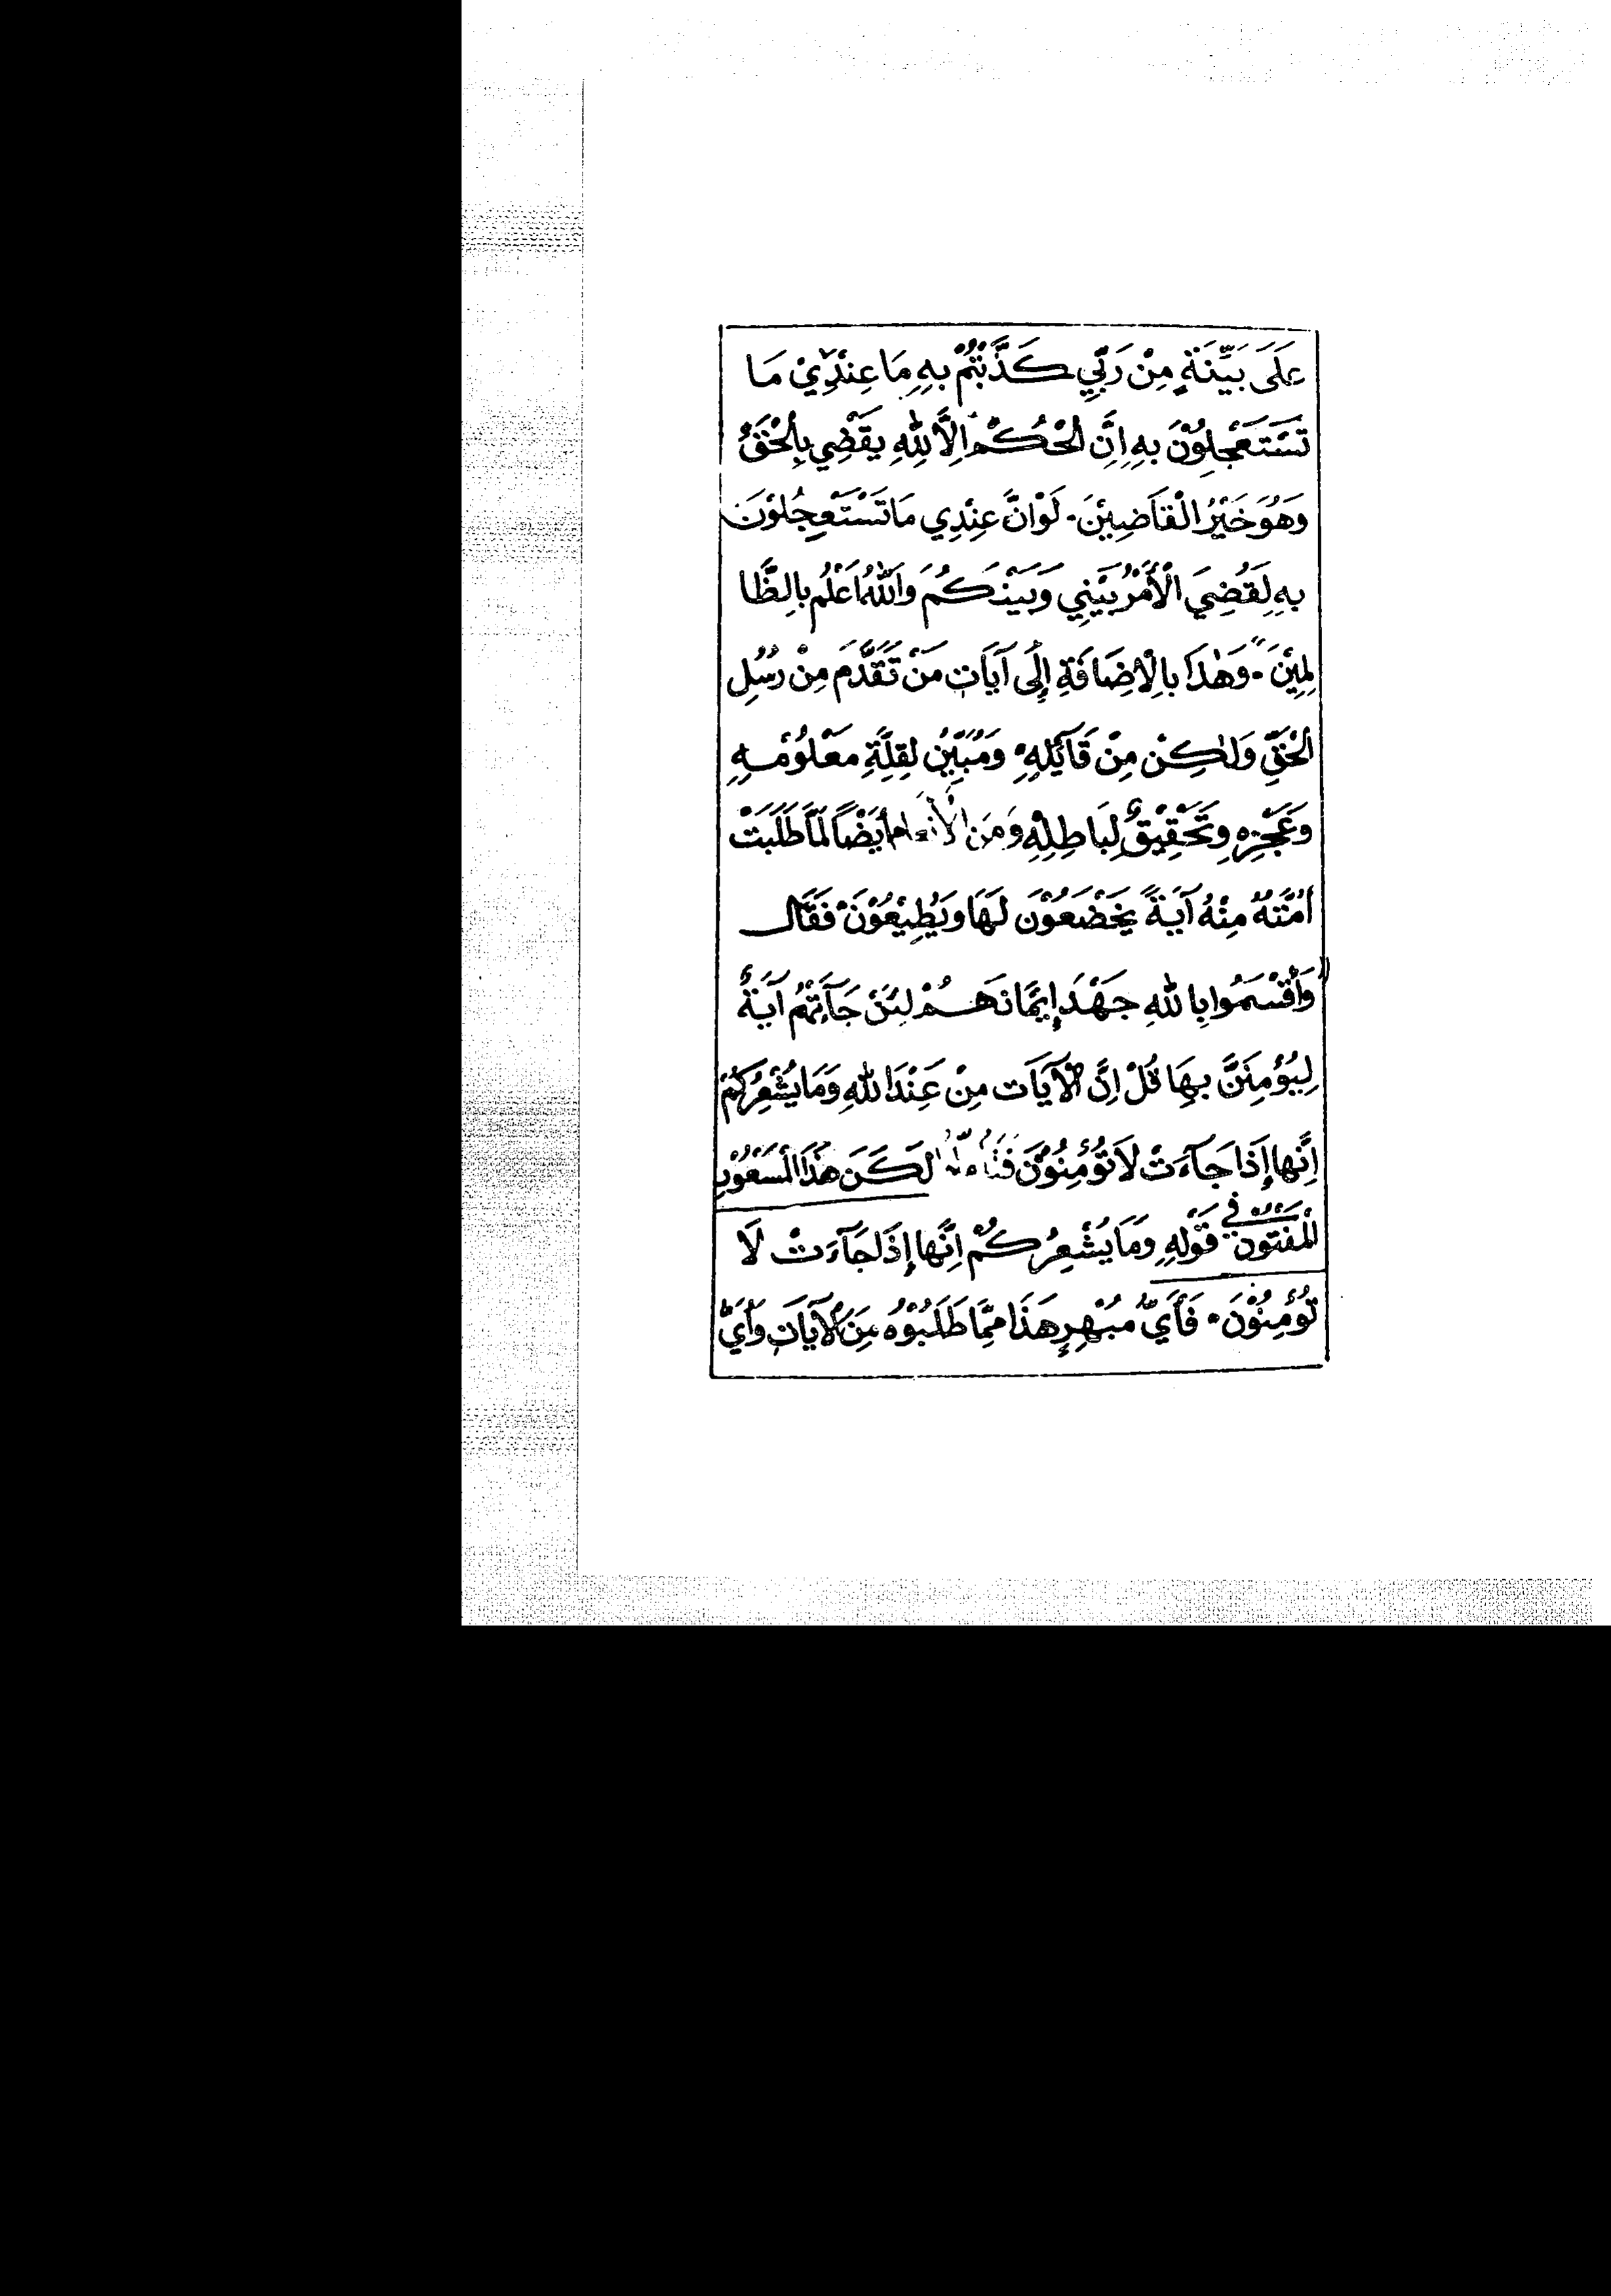 عَلَى بَيِّنَةٍ مِنْ رَبِّي كَذَّبْتُمْ بِهِ مَا عِنْدِيْ مَا
تَسْتَعْجِلُوْنَ بِهِ اِنِ الْحُكْمُ اِلَّا لِلّٰهِ يَقْضِي بِالْحَقِّ
وَهُوَ خَيْرُ الْقَاضِيِيْنَ۔ لَوْ اَنَّ عِنْدِي مَا تَسْتَعْجِلُوْنَ
بِهِ لَقُضِيَ الْأَمْرُ بَيْنِي وَبَيْنَكُمْ وَاللّٰهُ اَعْلَمُ بِالظَّا
لِمِيْنَ"۔ وَهٰذَا بِالْاِضَافَةِ إِلَى آيَاتِ مَنْ تَقَدَّمَ مِنْ رُسُلِ
الْحَقِّ وَلٰكِنْ مِنْ قَآئِلِهِ وَمُبَيِّنٌ لِقِلَّةِ مَعْلُوْمِهِ
وَعَجْزِهِ وَتَحْقِيْقٌ لِبَاطِلِهِ وَمِنَ الْأَنْعَامِ أَيْضًا لَمَّا طَلَبَتْ
اُمَّتُهُ مِنْهُ آيَةً يَخْضَعُوْنَ لَهَا وَيُطِيْعُوْنَ فَقَالَ
"وَأَقْسَمُوا بِاللّٰهِ جَهْدَ إِيْمَانِهِمْ لَئِنْ جَآءَتْهُمْ آيَةٌ
لِيُؤْمِنَنَّ بِهَا قُلْ اِنَّ الْآيَاتِ مِنْ عِنْدَ اللّٰهِ وَمَا يُشْعِرُكُمْ
اِنَّهَا إِذَا جَآءَتْ لَا تُؤْمِنُوْنَ لَكِنَّ هٰذَا الْمَسْعُوْدِ
الْمَفْتُوْنِ فِي قَوْلِهِ وَمَا يُشْعِرُكُمْ اِنَّهَا إِذَا جَآءَتْ لَا
تُؤْمِنُوْنَ۔ فَأَيُّ مُبْهِرٍ هَذَا مِمَّا طَلَبُوْهُ مِنَ الْآيَاتِ وَأَيُّ